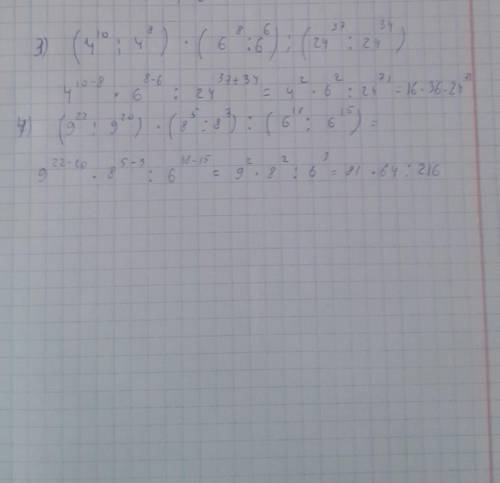 3) (4¹⁰ : 4⁸) · (6⁸ : 6⁶) : (24³⁷ : 24³⁴)
4¹⁰⁻⁸ · 6⁸⁻⁶ : 24³⁷⁺³⁴ = 4² · 6² : 24⁷¹ = 16 · 36 · 24⁷¹
4) (9²² : 9²⁰) · (8⁵ : 8³) : (6¹⁸ : 6¹⁵) =
9²²⁻²⁰ · 8⁵⁻³ : 6¹⁸⁻¹⁵ = 9² · 8² : 6³ = 81 · 64 : 216